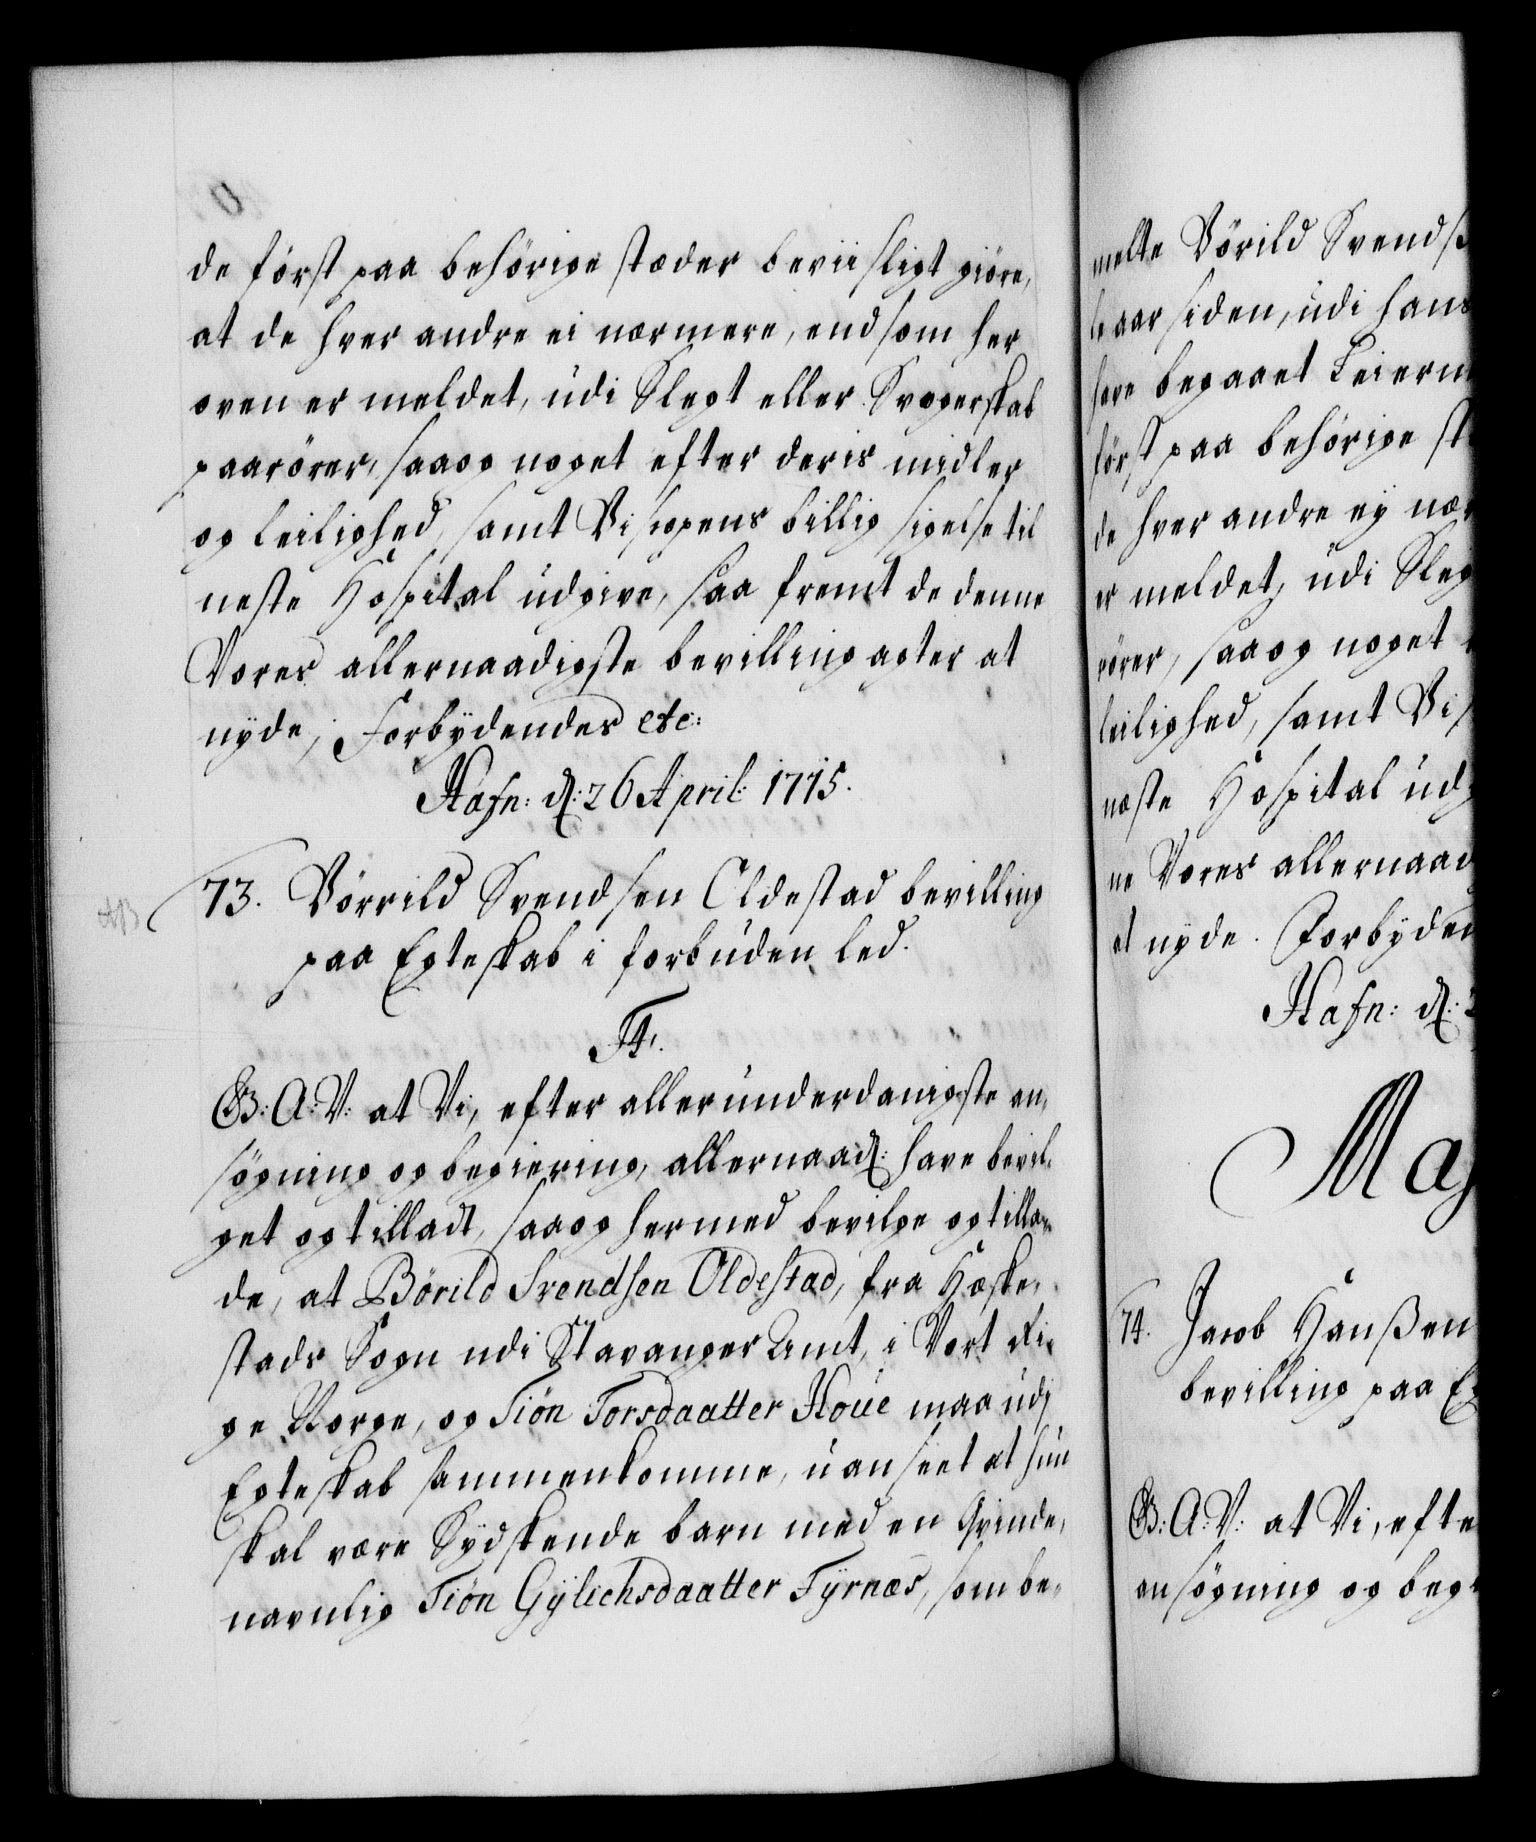 de först paa behörige stæder beviisligt giöre,
at de hver andre ei nærmere, end som her
oven er meldet, udi Slegt eller Svogerskab
paarörer, saa og noget efter deris midler
og leilighed, samt Bispens billig sigelse til
neste Hospital udgive, saa fremt de denne
Vores allernaadigste bevilling agter at
nyde, Forbydendes etc:
Hafn: d: 26 April: 1715.
73. Börrild Svendsen Oldestad bevilling
paa Egteskab i forbuden led.
F4.
G: A: V: at Vi, efter allerunderdanigste an,
søgning og begiering, allernaad: have bevil,
get og tilladt, saa og hermed bevilge og tilla,
de, at Börild Svendsen Oldestad, fra Hæske,
stads Sogn udi Stavanger Amt, i Vort Ri,
ge Norge, og Siön Torsdaatter Houe maa udi
Egteskab sammenkomme, uanseet at hun
skal være Sydskende barn med en Qvinde,
navnlig Siön Gylichsdaatter Tyrnæs, som be,
melte Börild Svends
aar siden, udi hans
have begaaet Leierm
først paa behörige st
de hver andre ey nær
er meldet, udi Sleg
rörer, saa og noget
leilighed, samt Bis
næste Hospital udg
ne Vores allernaad
at nyde. Forbyden
Hafn: d:
Maj
74. Jacob Hanßen
bevilling paa Eg
G: A: V: at Vi, efte
ansøgning og beg